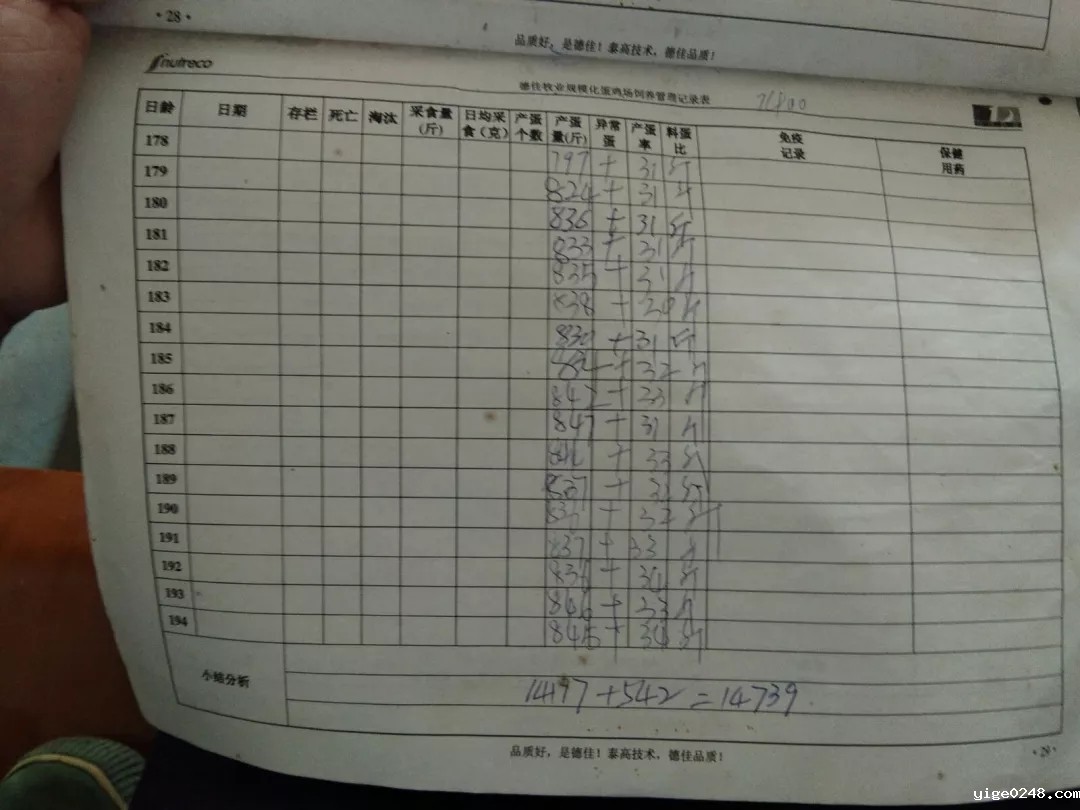 ·28·
品质好，是德佳！泰高技术，德佳品质！
nutreco
德佳牧业规模化蛋鸡场饲养管理记录表
日龄 日期 存栏 死亡 淘汰 采食量(斤) 日均采食（克） 产蛋个数 产蛋量(斤) 异常蛋 产蛋率 料蛋比 免疫记录 保健用药
178 797 + 31 斤
179 824 + 31 斤
180 836 + 31 斤
181 833 + 31 斤
182 835 + 31 斤
183 838 + 斤
184 830 + 31 斤
185 + 32 斤
186 842 + 33 斤
187 847 + 31 斤
188 + 33 斤
189 837 + 斤
190 + 32 斤
191 837 + 33 斤
192 + 34 斤
193 846 + 33 斤
194 845 + 34 斤
小结分析
14197+542=14739
品质好，是德佳！泰高技术，德佳品质！
·29·
yige0248.com